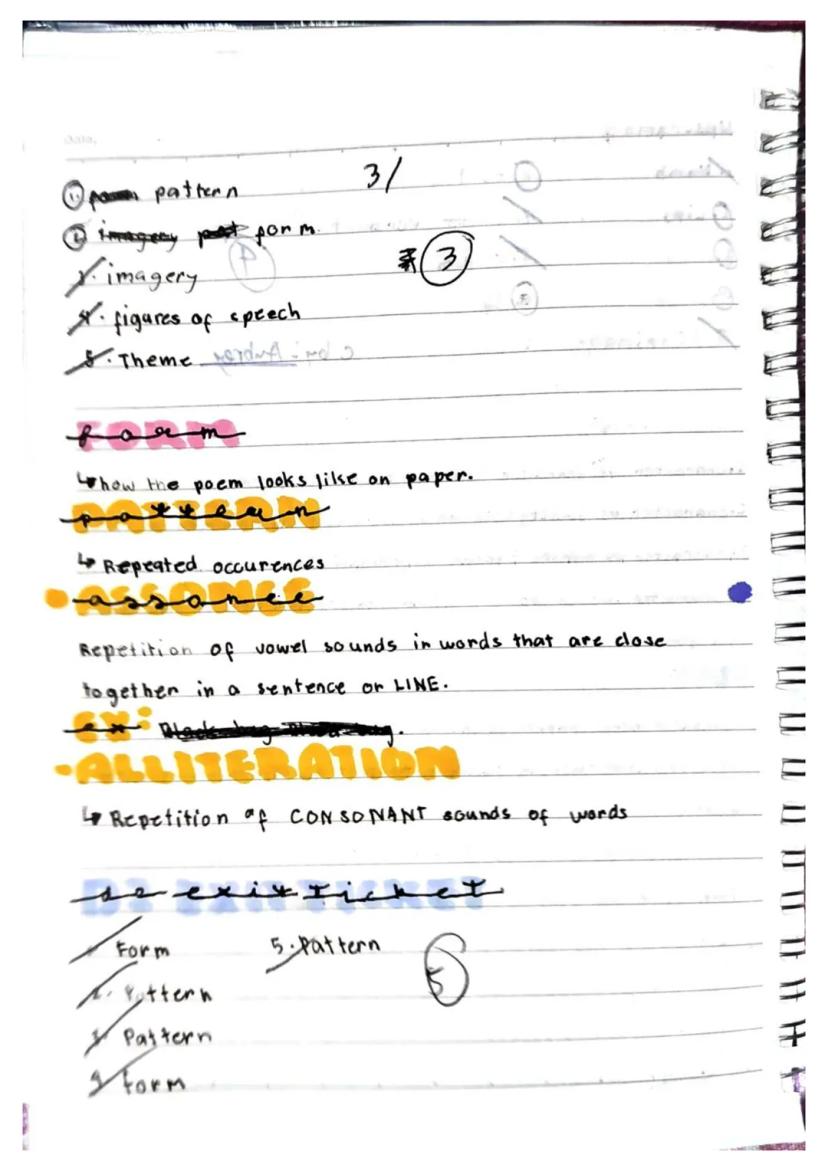 Date:
3/
1. pattern
2. imagery form
3
3. imagery
4. figures of speech
5. Theme
FORM
↳ how the poem looks like on paper.
PATTERN
↳ Repeated occurences
• ASSONCE
Repetition of vowel sounds in words that are close
together in a sentence or LINE.
EX:
• ALLITERATION
↳ Repetition of CONSONANT sounds of words
EXIT TICKET
1. Form 5. Pattern
5
2. Pattern
3. Pattern
4. Form